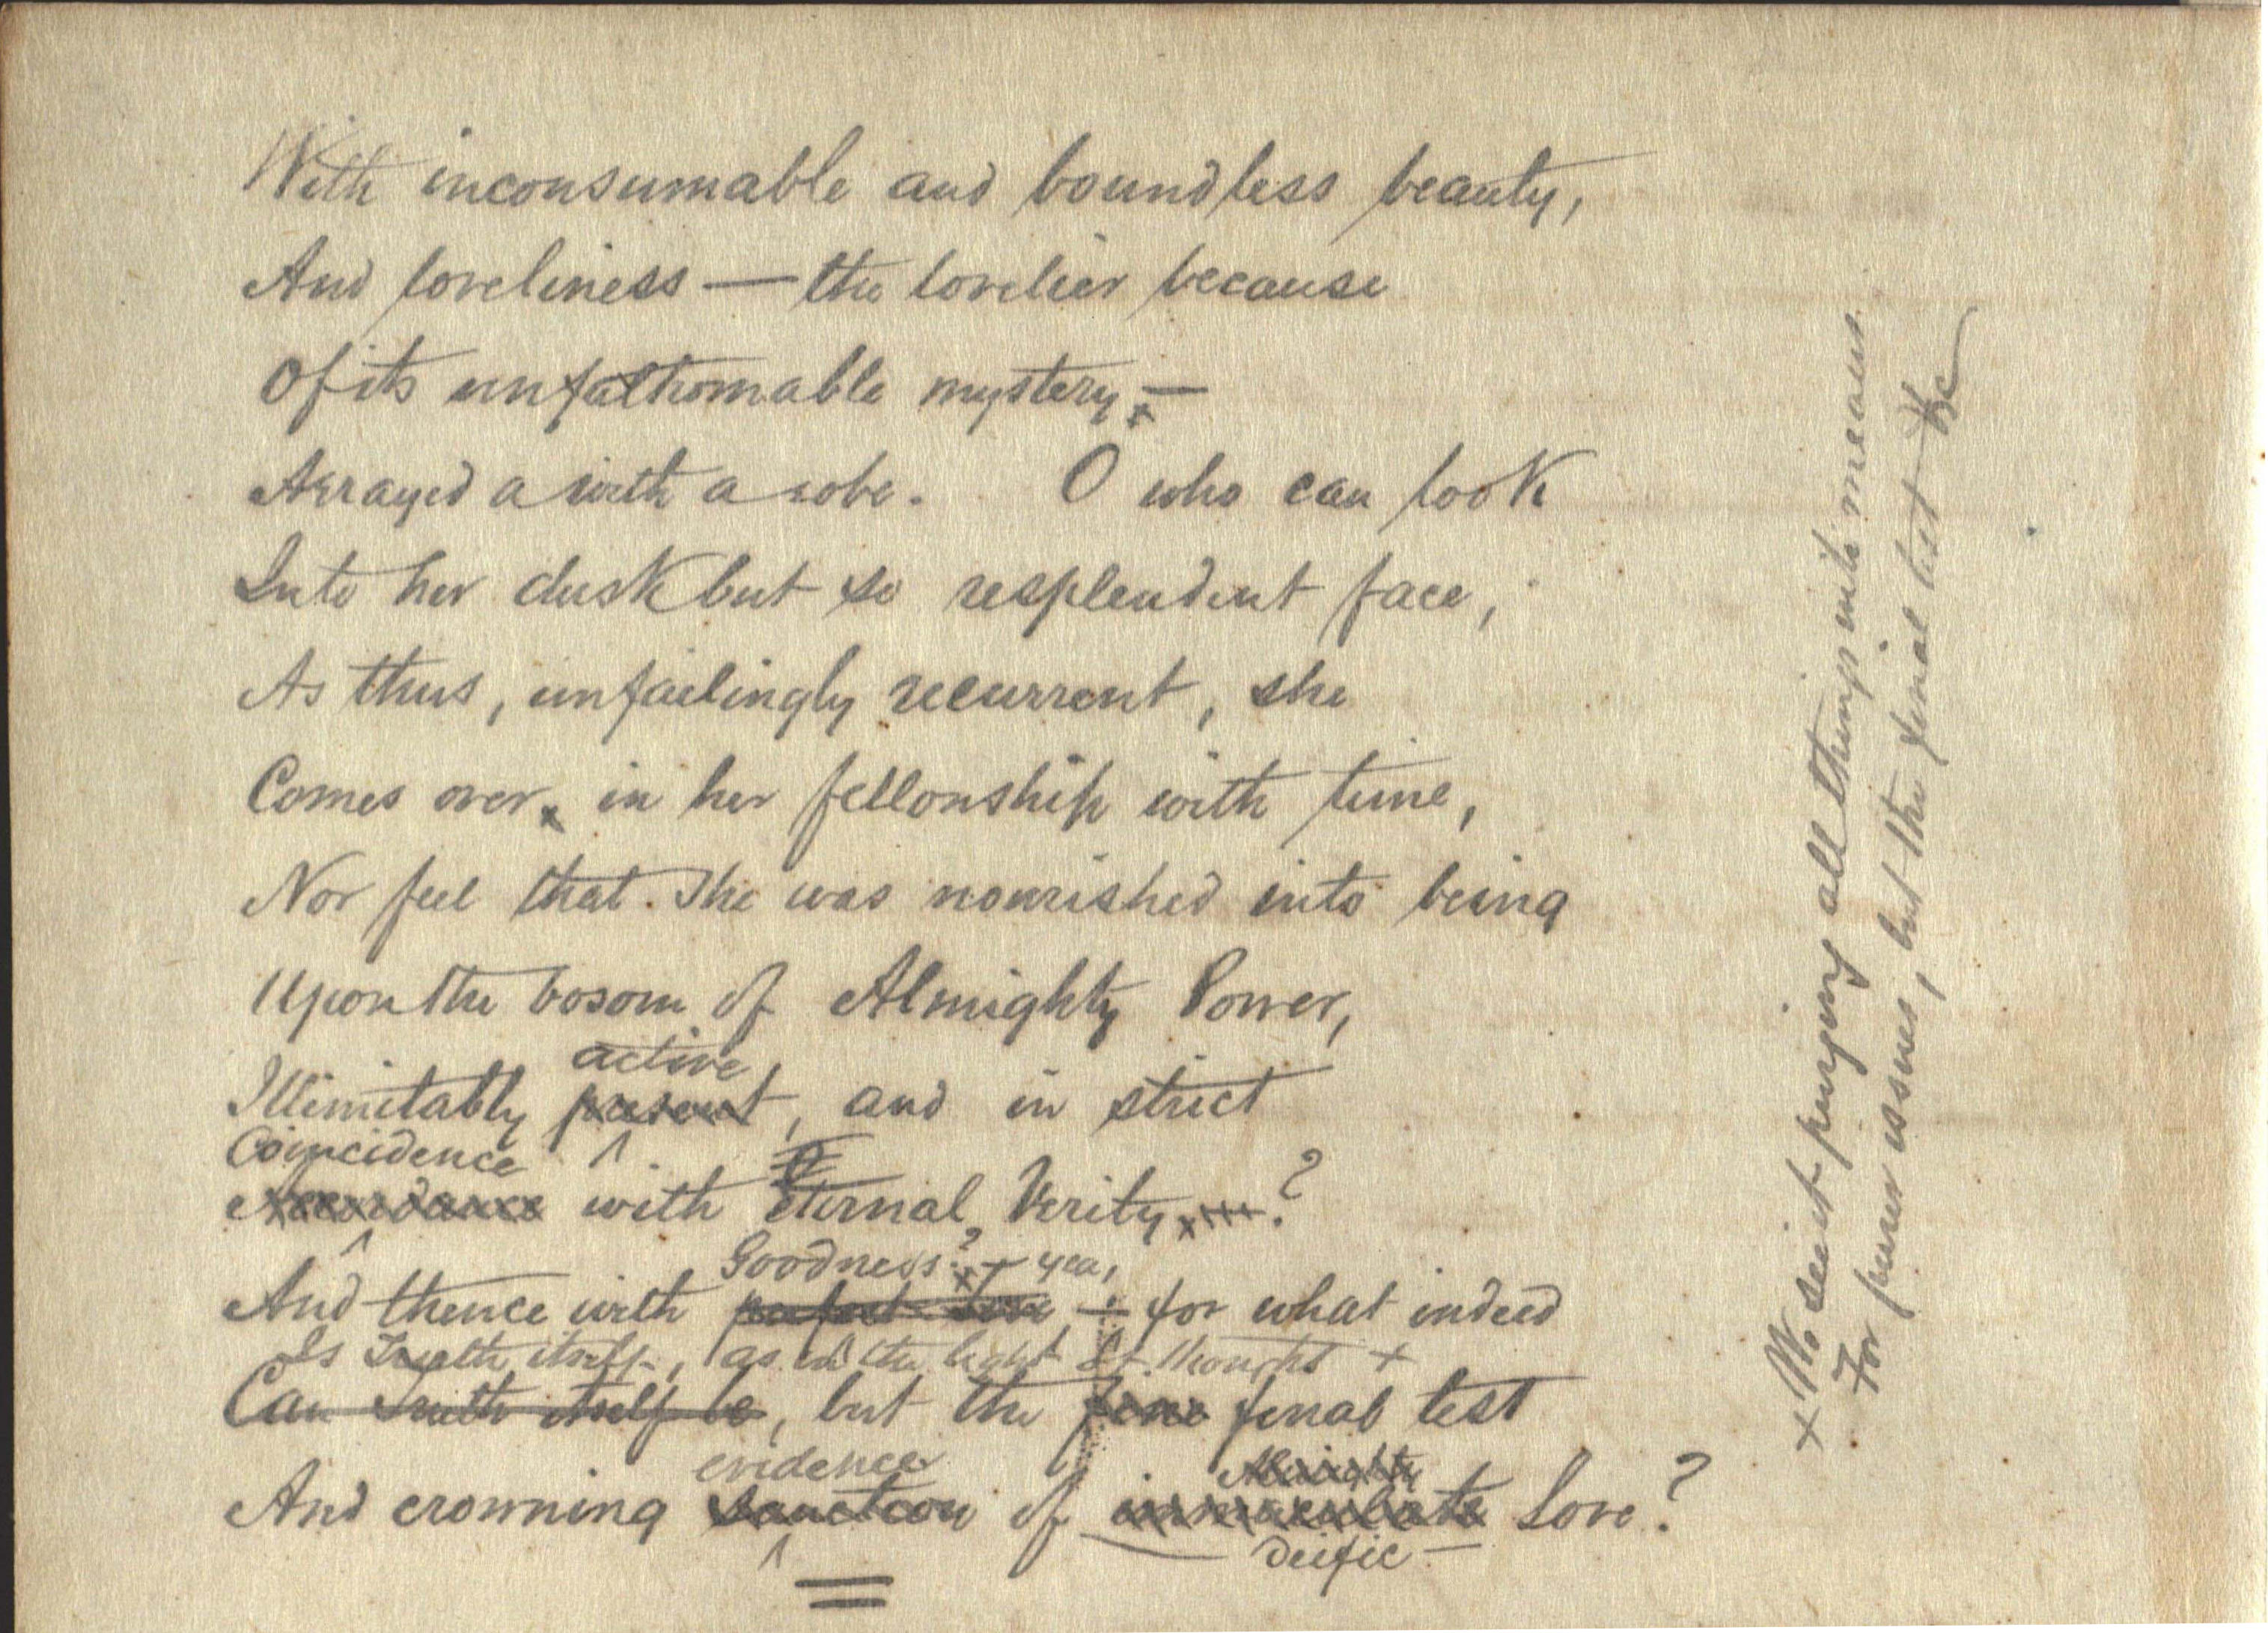 With inconsumable and boundless beauty,
And loveliness — the lovelier because
Of its unfathomable mystery —
Arrayed a with a robe. O who can look
Into her dusk but so resplendent face,
As thus, unfailingly recurrent, she
Comes over, in her fellowship with time,
Nor feel that she was nourished into being
Upon the bosom of Almighty Power,
active
Illimitably present, and in strict
Coincidence
Accordance with Eternal Verity?
Goodness? — yea,
And thence with perfect love — for what indeed
Is Truth itself, as in the light of thought +
Can truth itself be, but the fine final test
evidence Almighty
And crowning sanction of immaculate Love?
Deific
+ We see it purging all things into means
For purer issues, but the final test &c